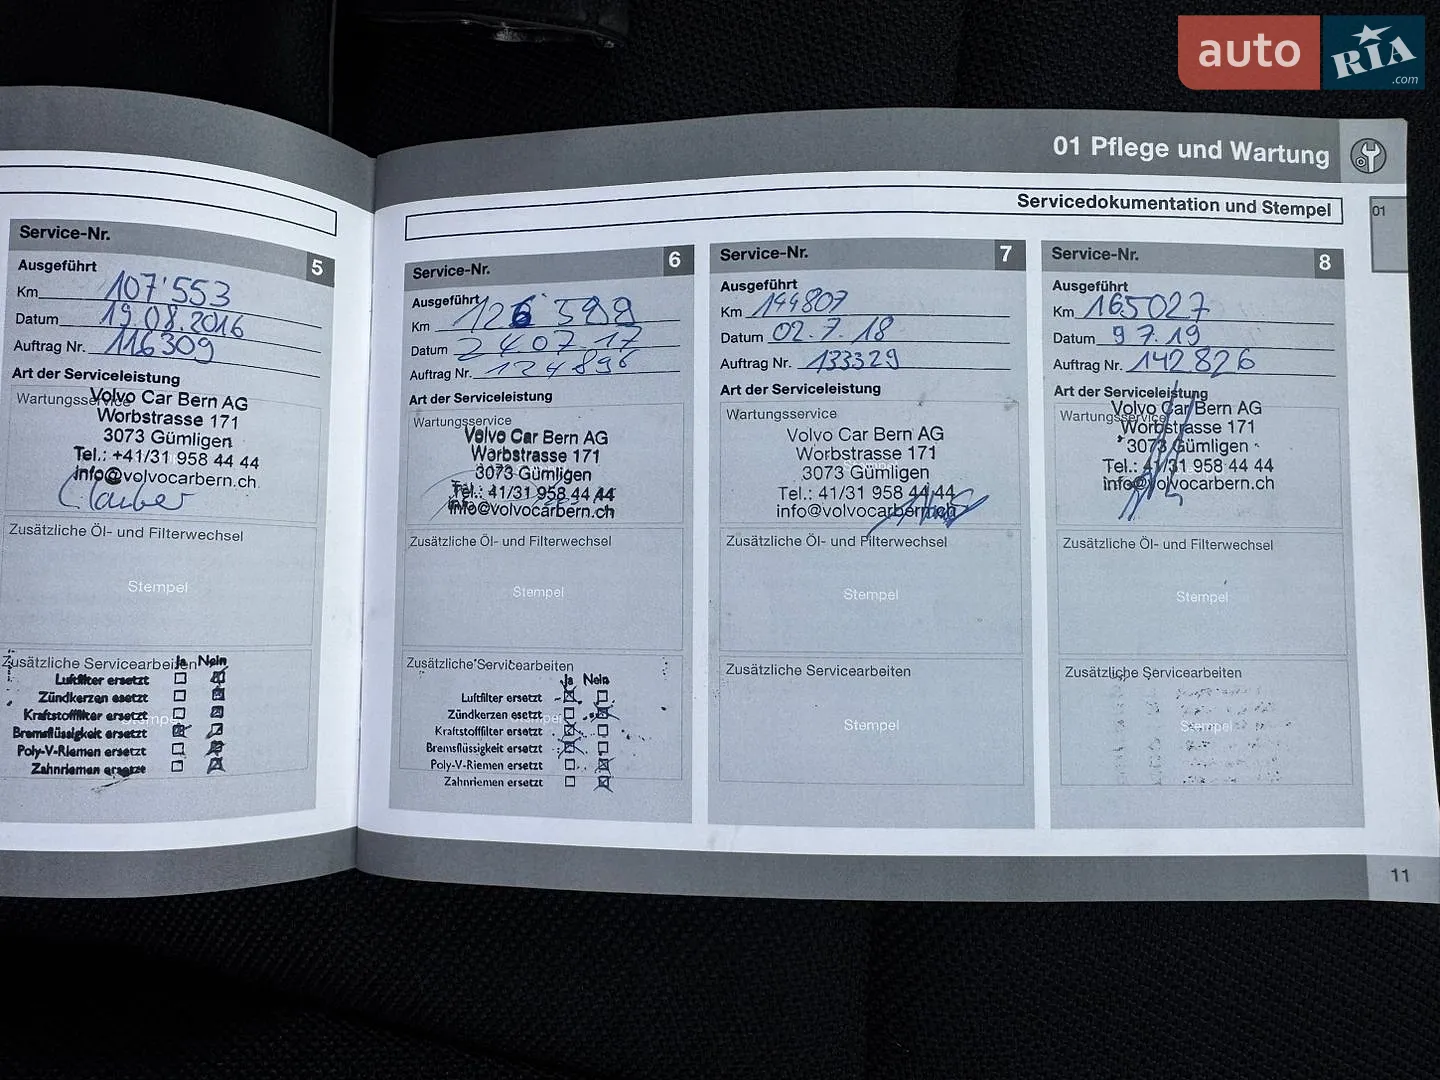 auto RIA .com
01 Pflege und Wartung
Servicedokumentation und Stempel
01
Service-Nr. 5
Ausgeführt
Km 107'553
Datum 19.08.2016
Auftrag Nr. 116309
Art der Serviceleistung
Wartungsservice
Volvo Car Bern AG
Worbstrasse 171
3073 Gümligen
Tel.: +41/31 958 44 44
info@volvocarbern.ch
Zusätzliche Öl- und Filterwechsel
Stempel
Zusätzliche Servicearbeiten
Ja Nein
Luftfilter ersetzt
Zündkerzen esetzt
Kraftstofffilter ersetzt
Bremsflüssigkeit ersetzt
Poly-V-Riemen ersetzt
Zahnriemen ersetzt
Service-Nr. 6
Ausgeführt
Km 126 599
Datum 24.07.17
Auftrag Nr. 124896
Art der Serviceleistung
Wartungsservice
Volvo Car Bern AG
Worbstrasse 171
3073 Gümligen
Tel.: 41/31 958 44 44
info@volvocarbern.ch
Zusätzliche Öl- und Filterwechsel
Stempel
Zusätzliche Servicearbeiten
Ja Nein
Luftfilter ersetzt
Zündkerzen esetzt
Kraftstofffilter ersetzt
Bremsflüssigkeit ersetzt
Poly-V-Riemen ersetzt
Zahnriemen ersetzt
Service-Nr. 7
Ausgeführt
Km 144807
Datum 02.7.18
Auftrag Nr. 133329
Art der Serviceleistung
Wartungsservice
Volvo Car Bern AG
Worbstrasse 171
3073 Gümligen
Tel.: 41/31 958 44 44
info@volvocarbern.ch
Zusätzliche Öl- und Filterwechsel
Stempel
Zusätzliche Servicearbeiten
Stempel
Service-Nr. 8
Ausgeführt
Km 165027
Datum 9.7.19
Auftrag Nr. 142826
Art der Serviceleistung
Wartungsservice
Volvo Car Bern AG
Worbstrasse 171
3073 Gümligen
Tel.: 41/31 958 44 44
info@volvocarbern.ch
Zusätzliche Öl- und Filterwechsel
Stempel
Zusätzliche Servicearbeiten
Stempel
11